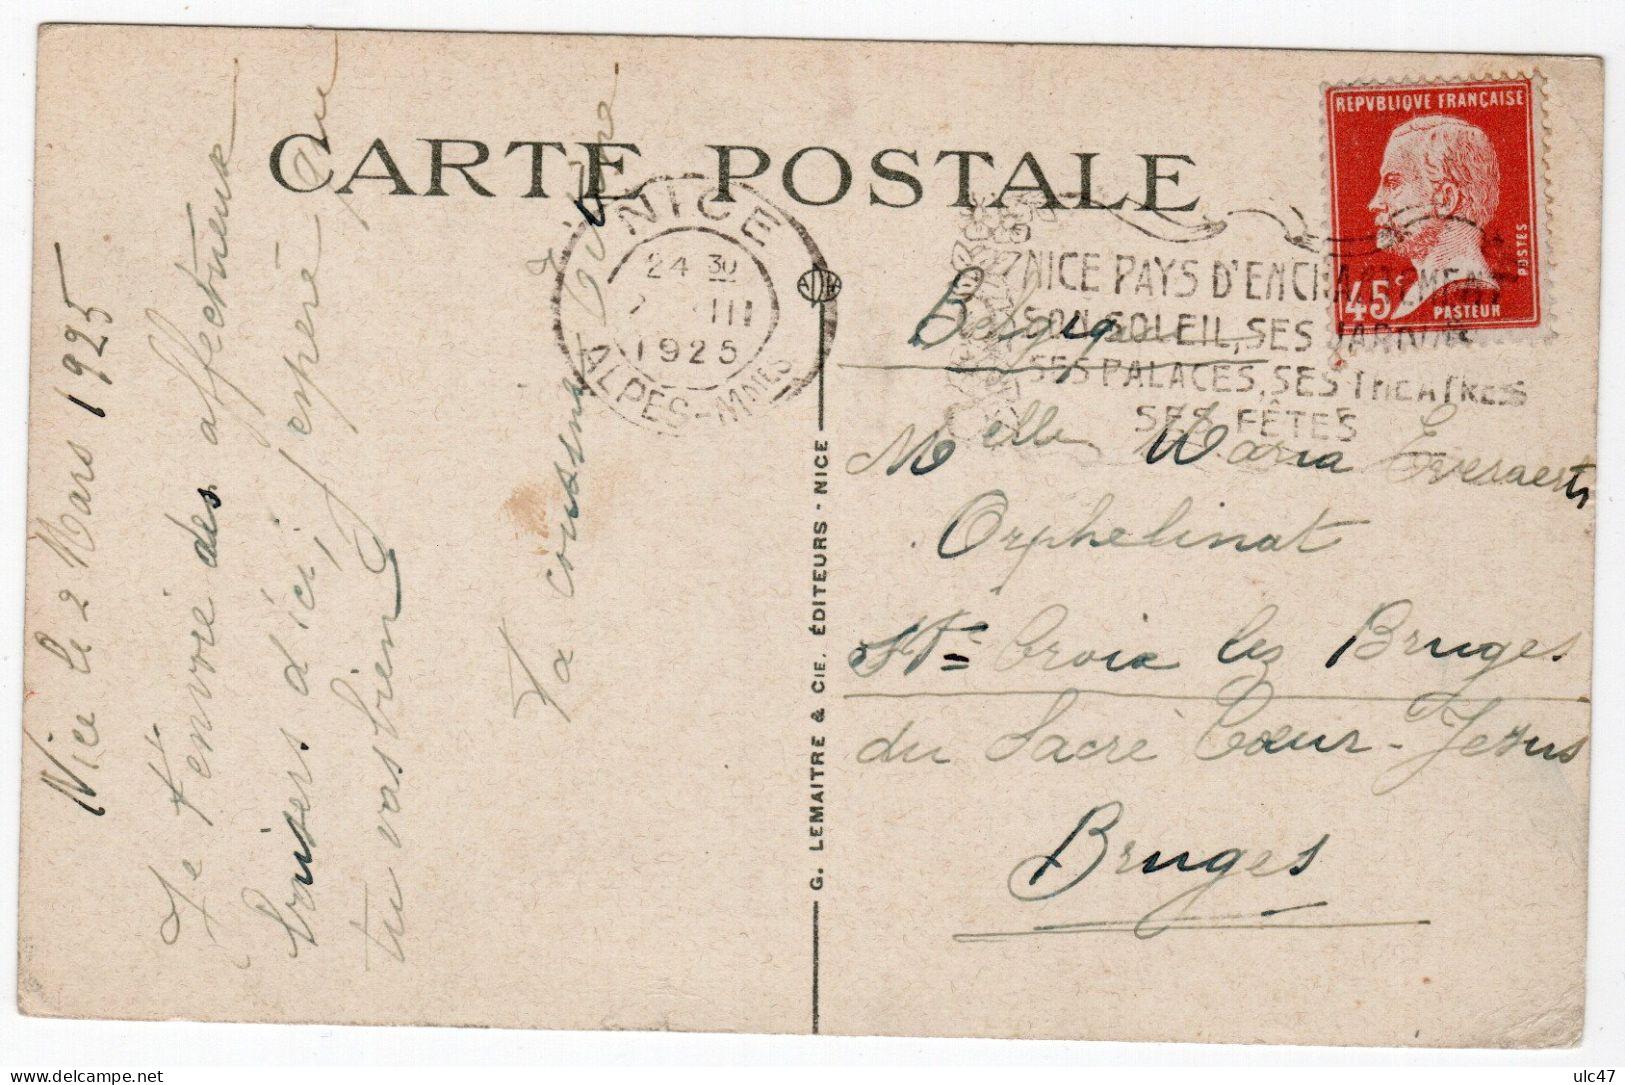 CARTE POSTALE
REPVBLIQVE FRANÇAISE
POSTES
45c
PASTEUR
NICE
24 30
2 III
1925
ALPES-MMES
NICE PAYS D'ENCHANTEMENT
SON SOLEIL, SES JARDINS
SES PALACES, SES THEATRES
SES FÊTES
Nice le 2 Mars 1925
Je t'envoie des affectueux
baisers d'ici, j'espère que
tu vas bien
Ta cousine
G. LEMAITRE & CIE. ÉDITEURS - NICE
Belgique
Melle Maria Everaerts
Orphelinat
Ste Croix lez Bruges
du Sacré Coeur-Jezus
Bruges
delcampe.net
ulc47